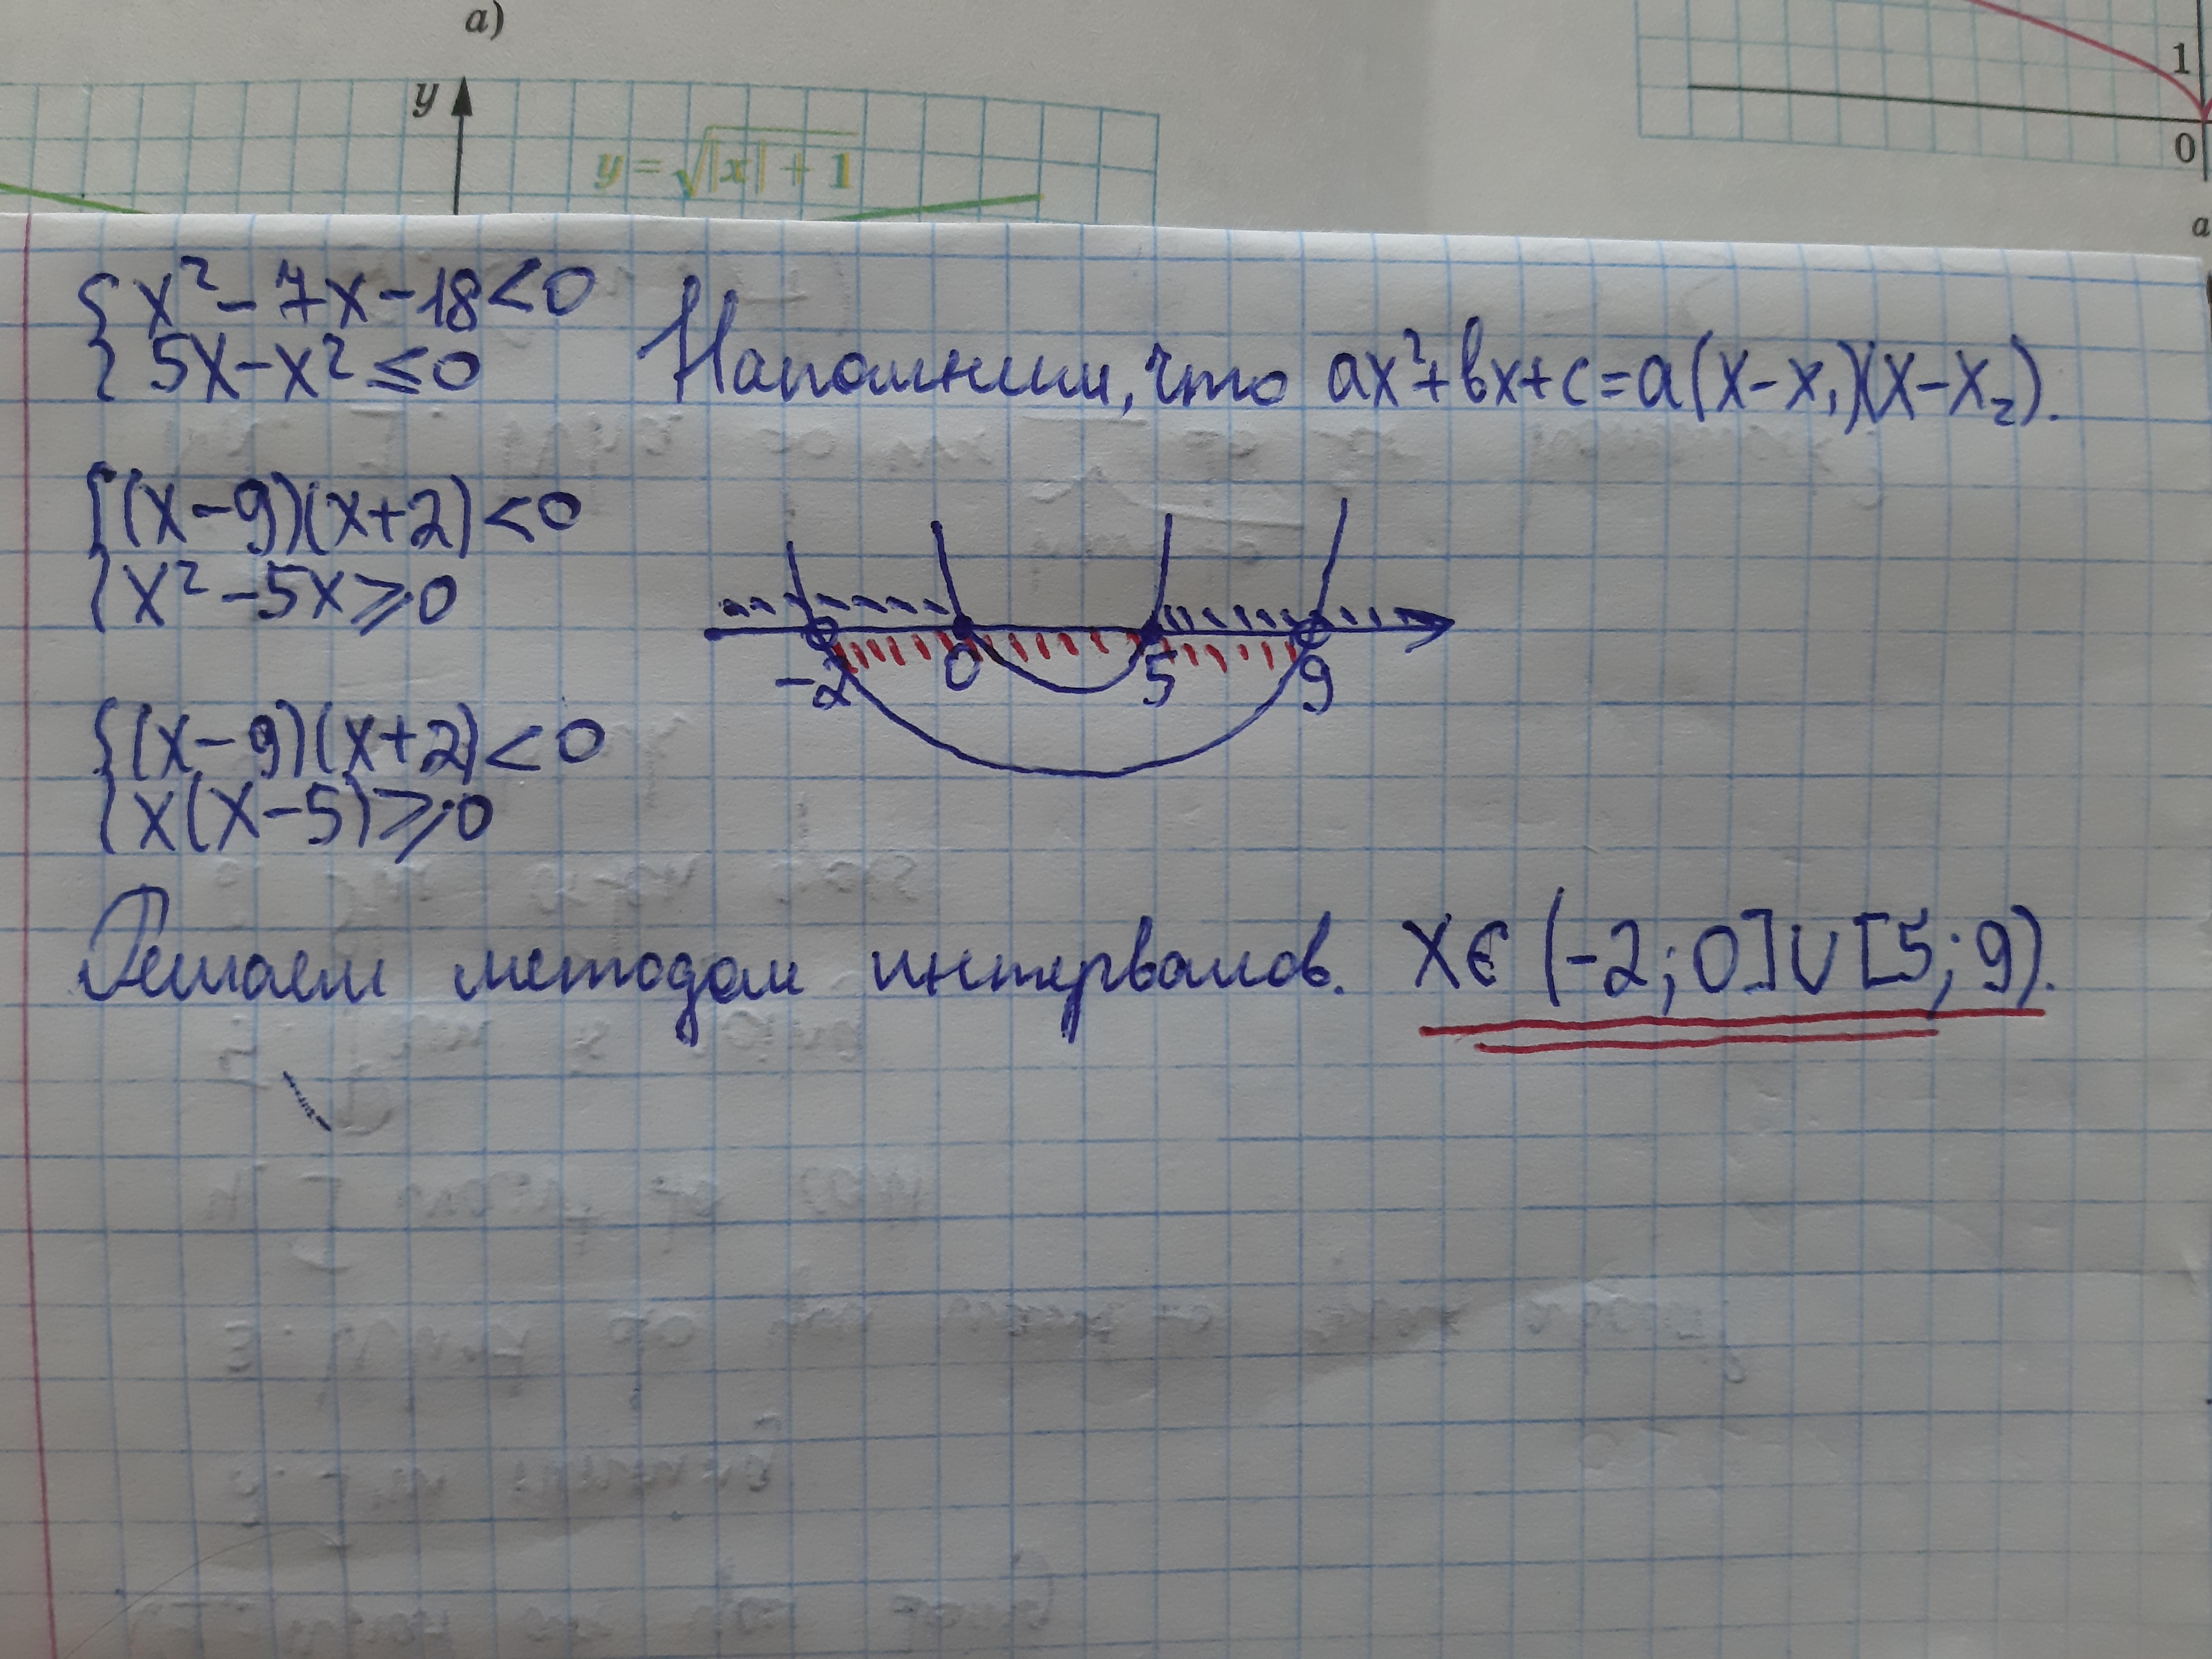 а)
y
y = √|x| + 1
1
0
а
{ x² - 7x - 18 < 0
{ 5x - x² ≤ 0
Напомним, что ax² + bx + c = a(x - x₁)(x - x₂).
{ (x - 9)(x + 2) < 0
{ x² - 5x ⩾ 0
-2 0 5 9
{ (x - 9)(x + 2) < 0
{ x(x - 5) ⩾ 0
Решаем методом интервалов. X ∈ (-2; 0] ∪ [5; 9).